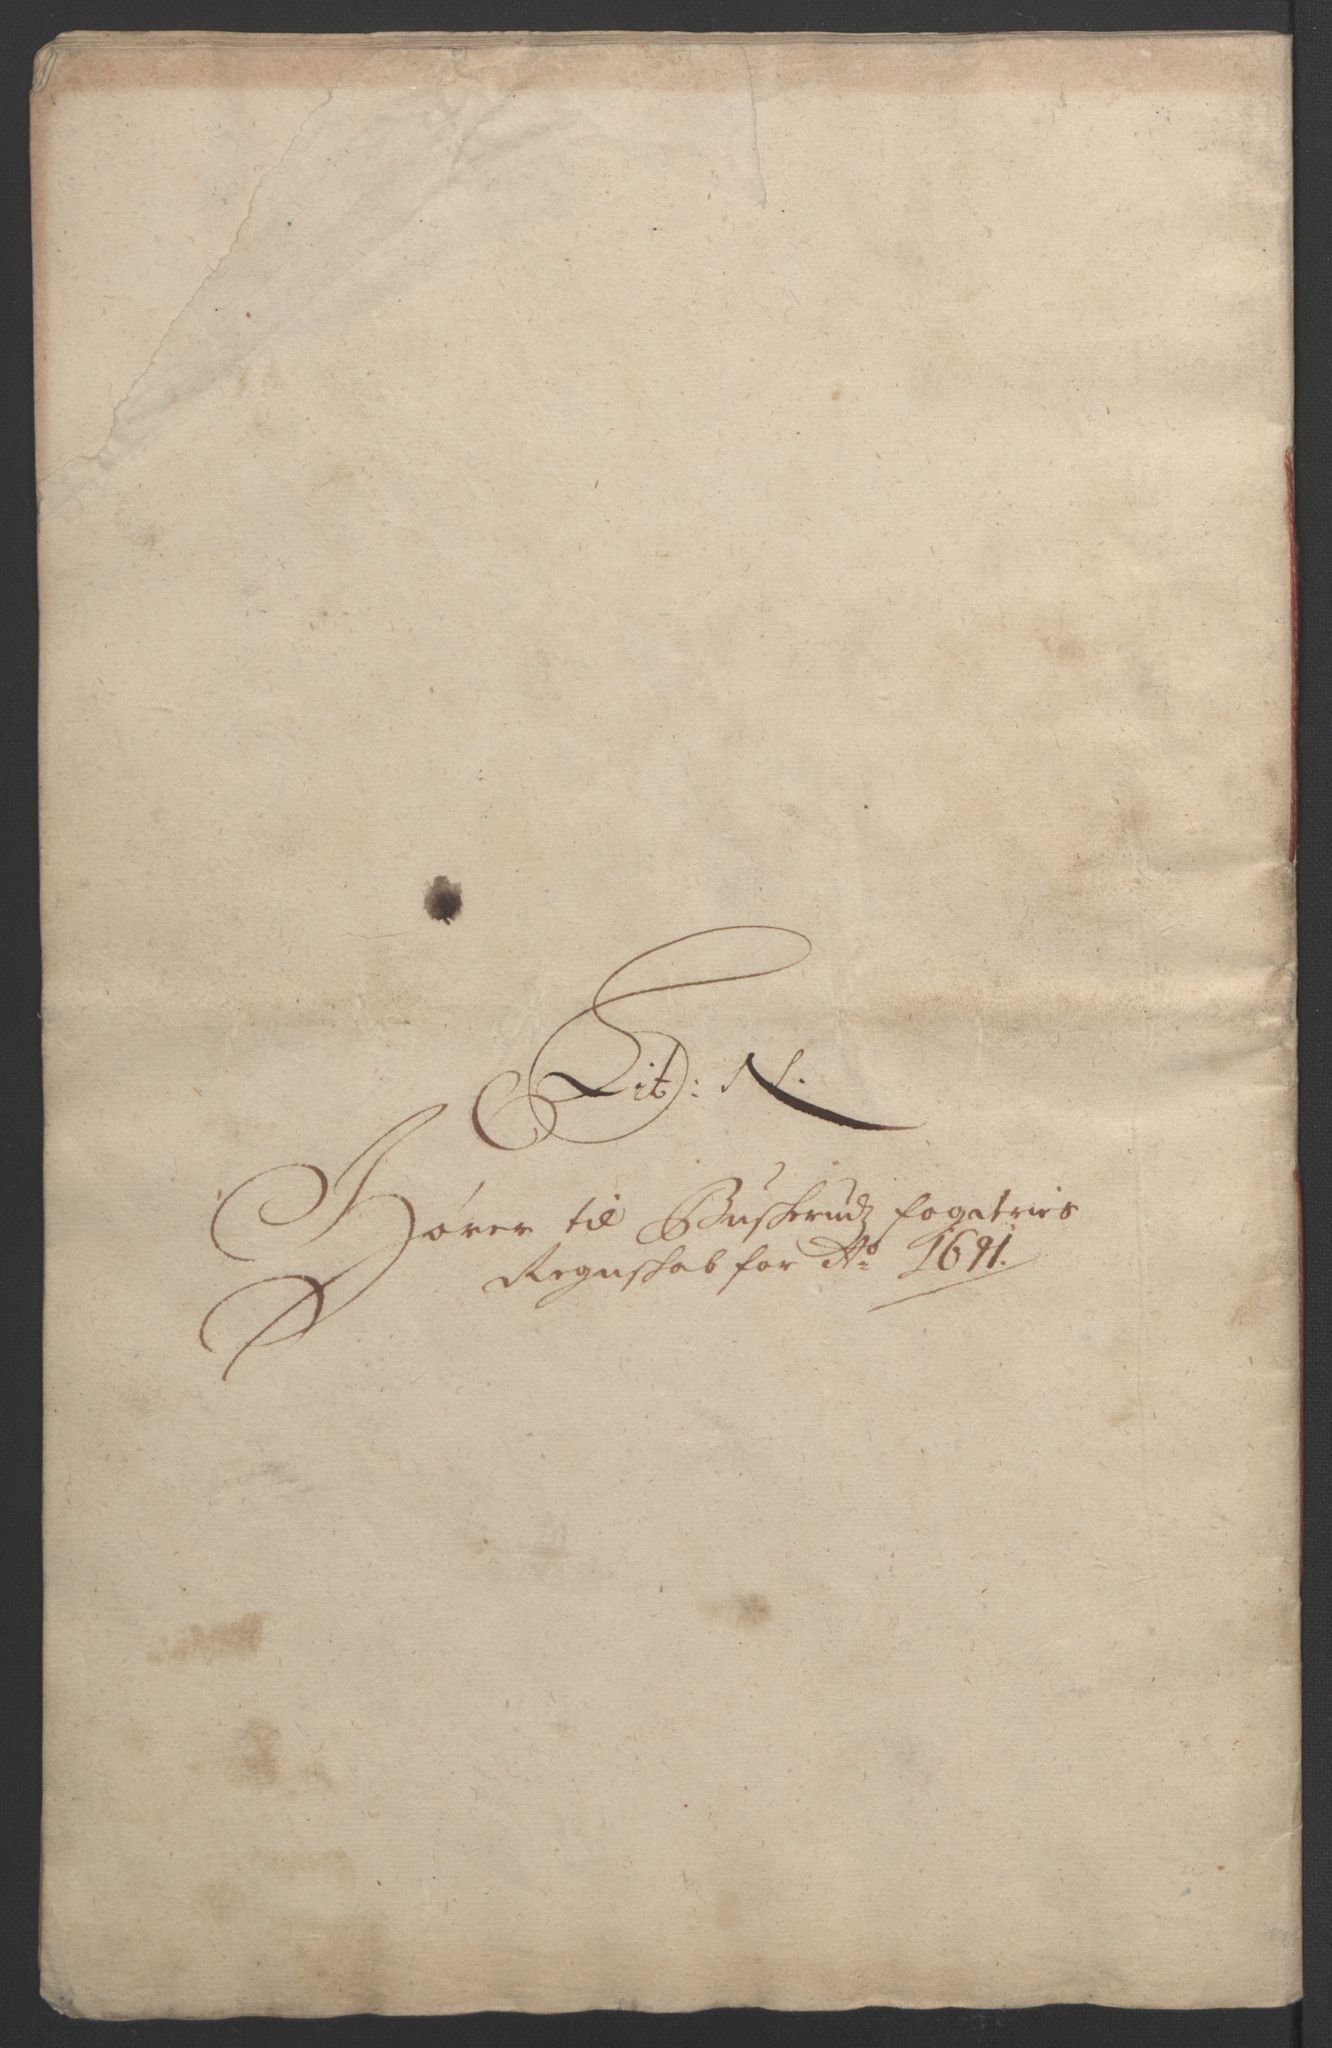 Lit: N.
Hører til Buskerudz fogatries
Regnskab for Aº 1691.